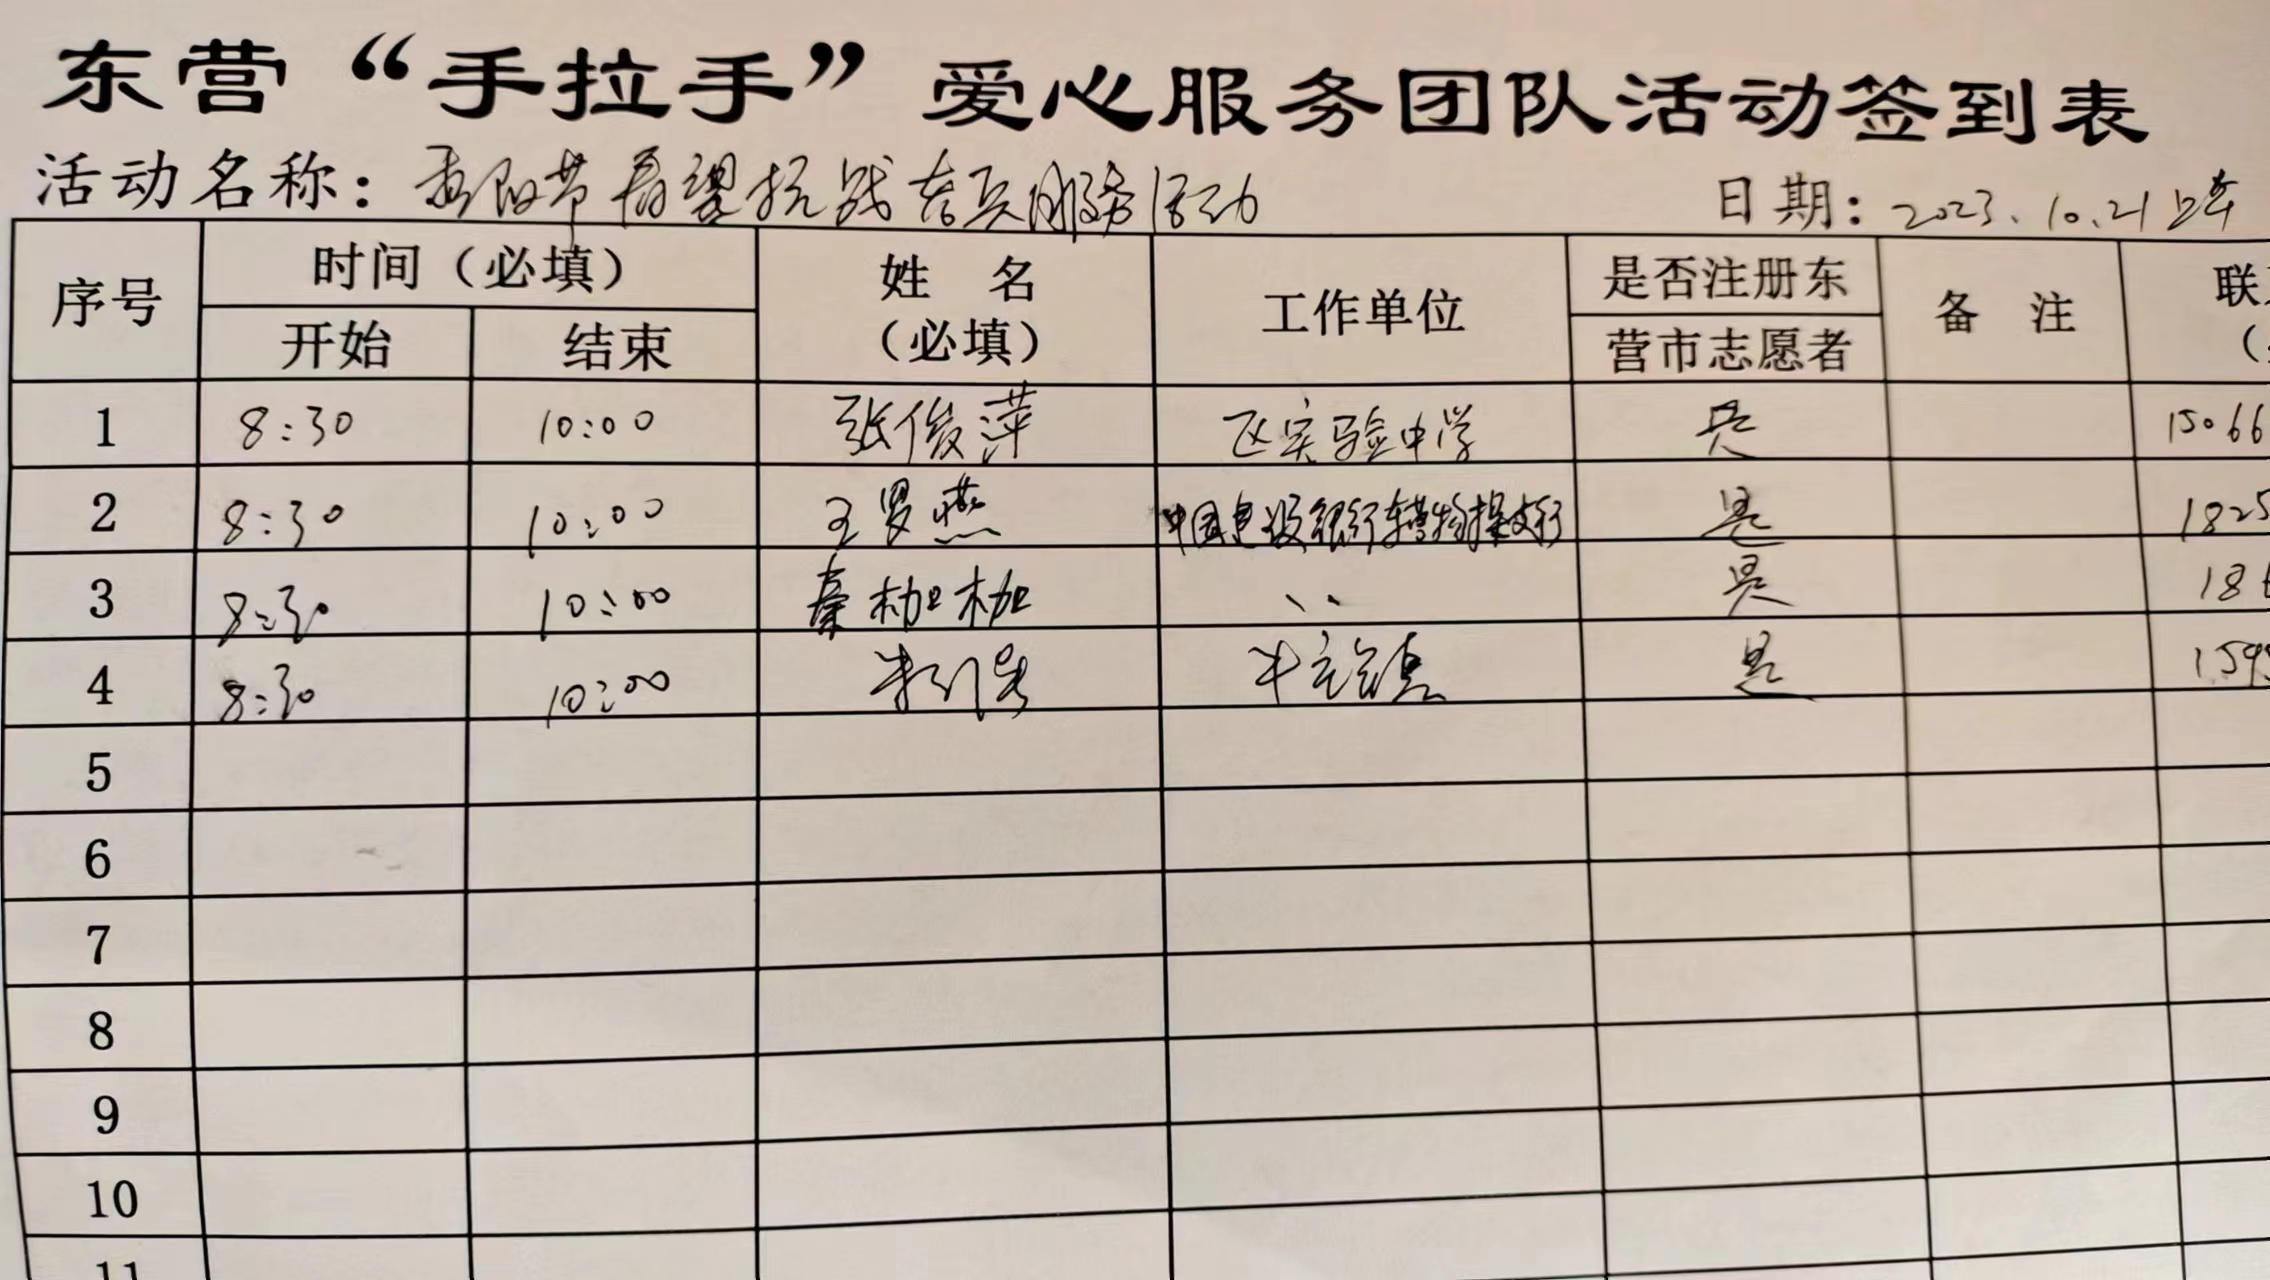 东营“手拉手”爱心服务团队活动签到表
活动名称：重阳节看望抗战老兵服务活动 日期：2023.10.21上午
序号 时间（必填） 姓 名（必填） 工作单位 是否注册东营市志愿者 备 注 联
开始 结束
1 8:30 10:00 张俊萍 区实验中学 是 15066
2 8:30 10:00 王罗燕 中国建设银行 支行 是 1825
3 8:30 10:00 秦 、、 是 18
4 8:30 10:00 牛庄镇 是 159
5
6
7
8
9
10
11